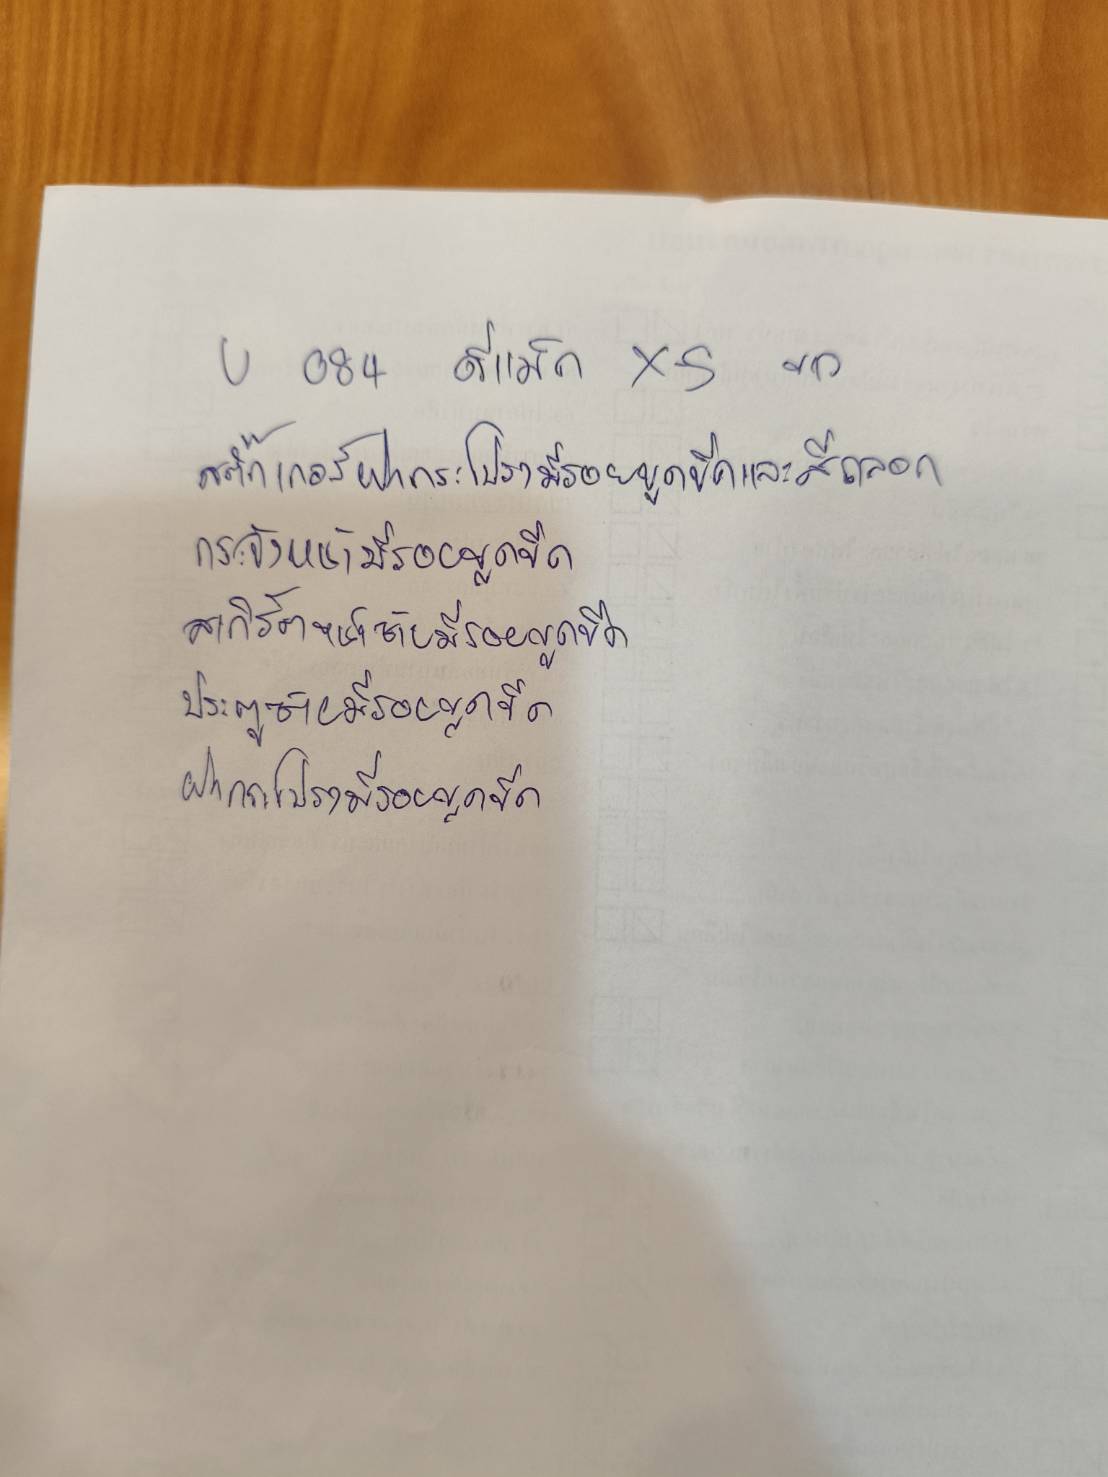 U 084 ดีแม็ก XS ขาว
สติ๊กเกอร์ฝากระโปรงมีรอยขูดขีดและสีถลอก
กระจังหน้ามีรอยขูดขีด
สเกิร์ตหน้าซ้ายมีรอยขูดขีด
ประตูซ้ายมีรอยขูดขีด
ฝากระโปรงมีรอยขูดขีด